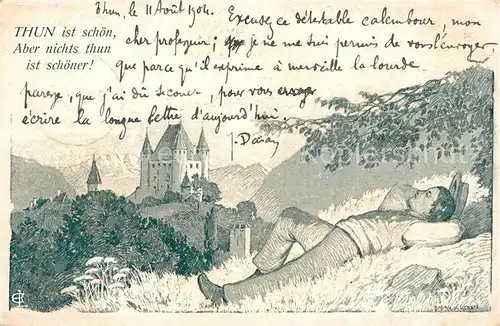 Thun, le 11 Août 1904.
THUN ist schön,
Aber nichts thun
ist schöner!
Excusez ce détestable calembour, mon
cher professeur; je ne me suis permis de vous l'envoyer,
que parce qu'il exprime à merveille la lourde
paresse, que j'ai dû secouer, pour vous
écrire la longue lettre d'aujourd'hui.
J.